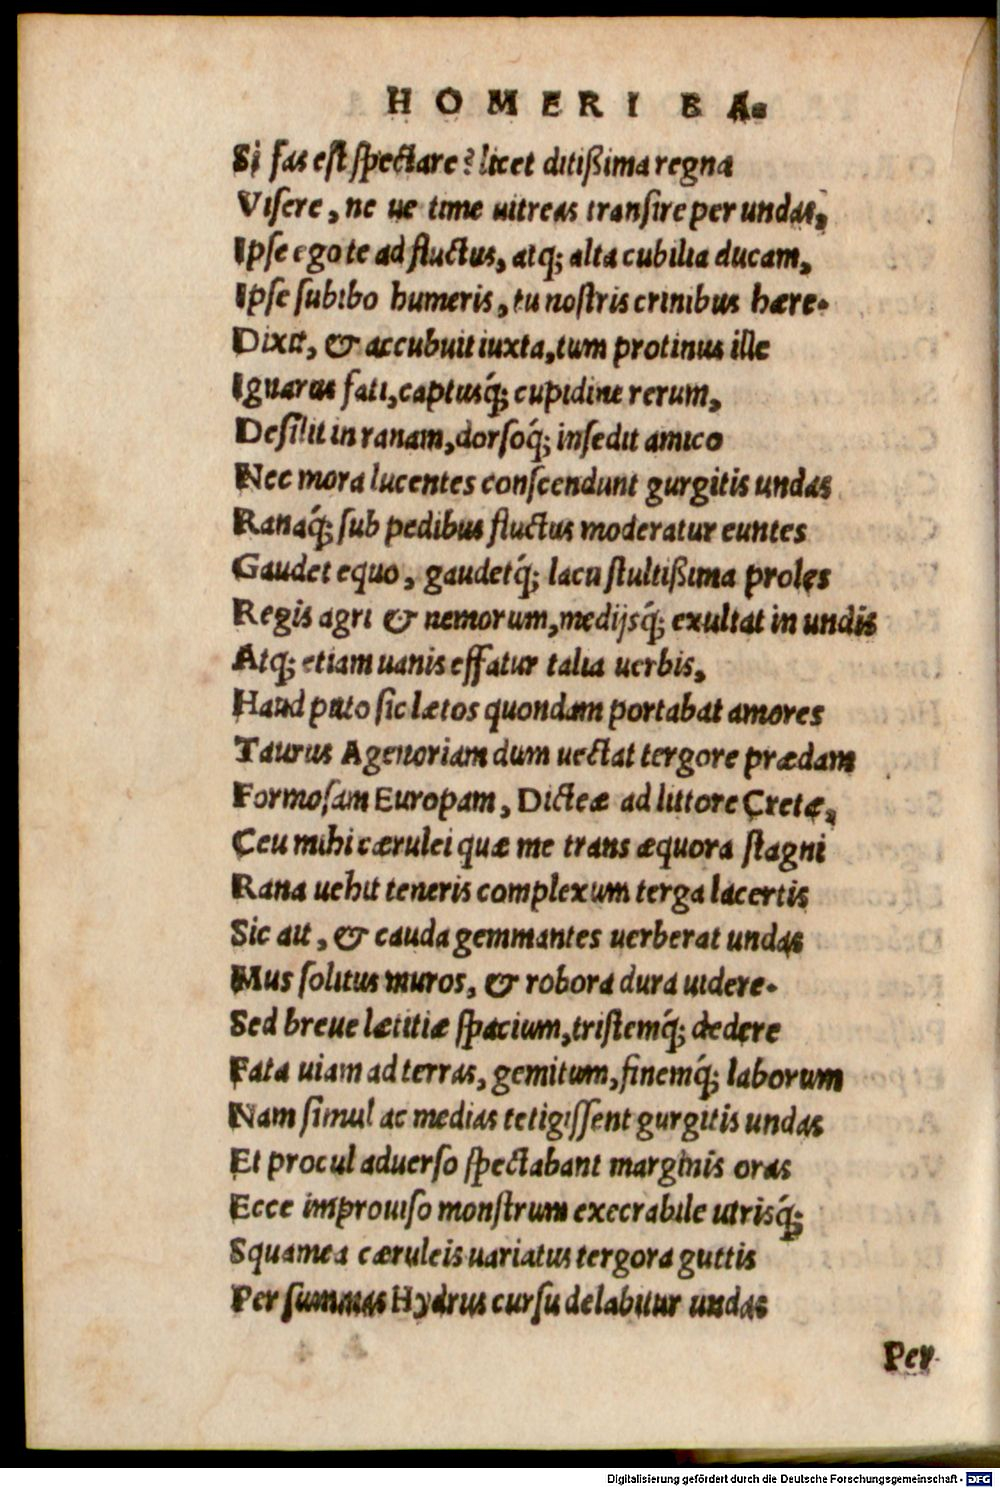 HOMERI BA.
Si fas est spectare? licet ditißima regna
Visere, ne ue time uitreas transire per undas,
Ipse ego te ad fluctus, atq; alta cubilia ducam,
Ipse subibo humeris, tu nostris crinibus hære.
Dixit, & accubuit iuxta, tum protinus ille
Ignarus fati, captusq́; cupidine rerum,
Desilit in ranam, dorsoq́; insedit amico
Nec mora lucentes conscendunt gurgitis undas
Ranaq́; sub pedibus fluctus moderatur euntes
Gaudet equo, gaudetq́; lacu stultißima proles
Regis agri & nemorum, medijsq́; exultat in undis
Atq; etiam uanis effatur talia uerbis,
Haud puto sic lætos quondam portabat amores
Taurus Agenoriam dum uectat tergore prædam
Formosam Europam, Dicteæ ad littore Cretæ,
Ceu mihi cærulei quæ me trans æquora stagni
Rana uehit teneris complexum terga lacertis
Sic ait, & cauda gemmantes uerberat undas
Mus solitus muros, & robora dura uidere.
Sed breue lætitiæ spacium, tristemq́; dedere
Fata uiam ad terras, gemitum, finemq́; laborum
Nam simul ac medias tetigissent gurgitis undas
Et procul aduerso spectabant marginis oras
Ecce improuiso monstrum execrabile utrisq́;
Squamea cæruleis uariatus tergora guttis
Per summas Hydrus cursu delabitur undas
Per
Digitalisierung gefördert durch die Deutsche Forschungsgemeinschaft - DFG